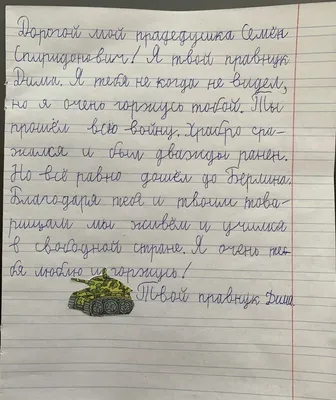 Дорогой мой прадедушка Семён
Спиридонович! Я твой правнук
Дима. Я тебя не когда не видел,
но я очень горжусь тобой. Ты
прошёл всю войну. Храбро сра-
жался и был дважды ранен.
Но всё равно дошёл до Берлина.
Благодаря тебе и твоим това-
рищам мы живём и учимся
в свободной стране. Я очень те-
бя люблю и горжусь!
Твой правнук Дима.